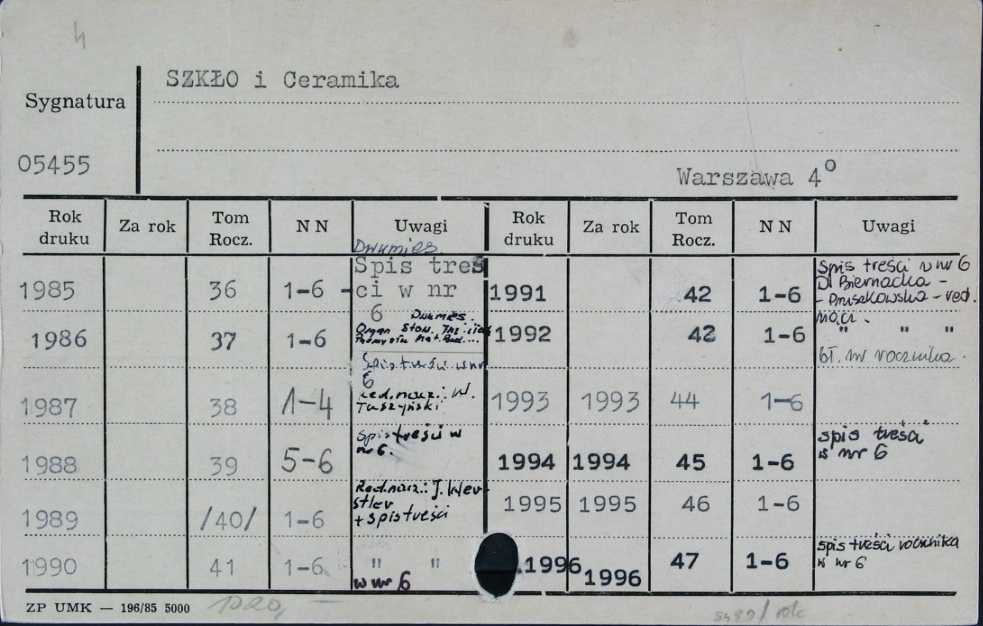 4
SZKŁO i Ceramika
Sygnatura
05455
Warszawa 4°
Rok druku Za rok Tom Rocz. N N Uwagi Rok druku Za rok Tom Rocz. N N Uwagi
Dwumies
1985 36 1-6 - Spis treści w nr 6 1991 42 1-6 Spis treści w nr 6
Biernacka - - Pruszkowska - red. nacz.
1986 37 1-6 Dwumies. Organ Stow. 1992 42 1-6 " " "
bł. nr rocznika.
Spis treści w nr 6
1987 38 1-4 Red. nacz.: W. Tuszyński 1993 1993 44 1-6
1988 39 5-6 Spis treści w nr 6. 1994 1994 45 1-6 spis treści w nr 6
1989 /40/ 1-6 Red. nacz.: J. + spis treści 1995 1995 46 1-6
1990 41 1-6 " " w nr 6 1996 1996 47 1-6 spis treści rocznika w nr 6
ZP UMK — 196/85 5000